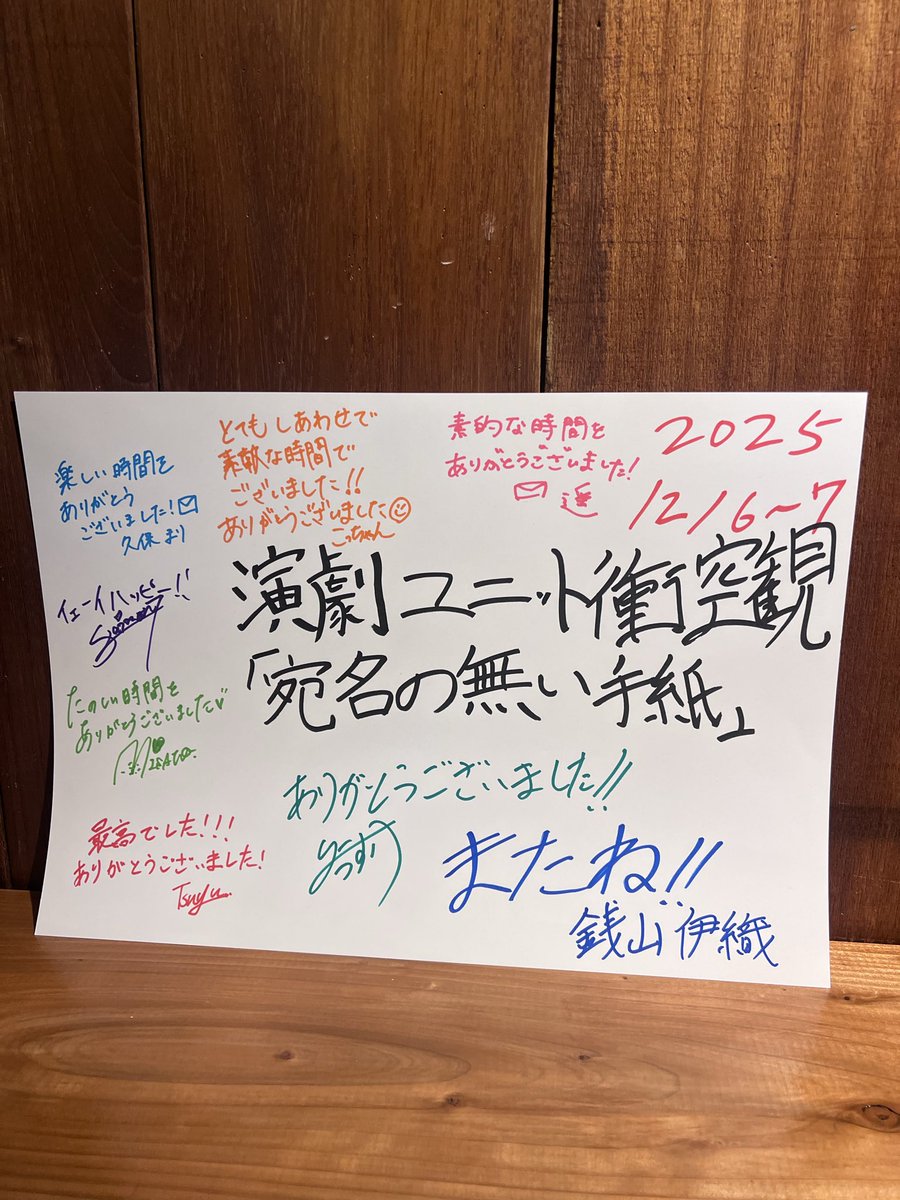 2025
12/6~7
素的な時間を
ありがとうございました!
遥
とても しあわせで
素敵な時間で
ございました!!
ありがとうございました
こっちゃん
楽しい時間を
ありがとう
ございました!
久保 まり
演劇ユニット衝空観
「宛名の無い手紙」
イェーイハッピー!!
たのしい時間を
ありがとうございました
MISATO
ありがとうございました!!
最高でした!!!
ありがとうございました!
Tsuyu
またね!!
銭山 伊織